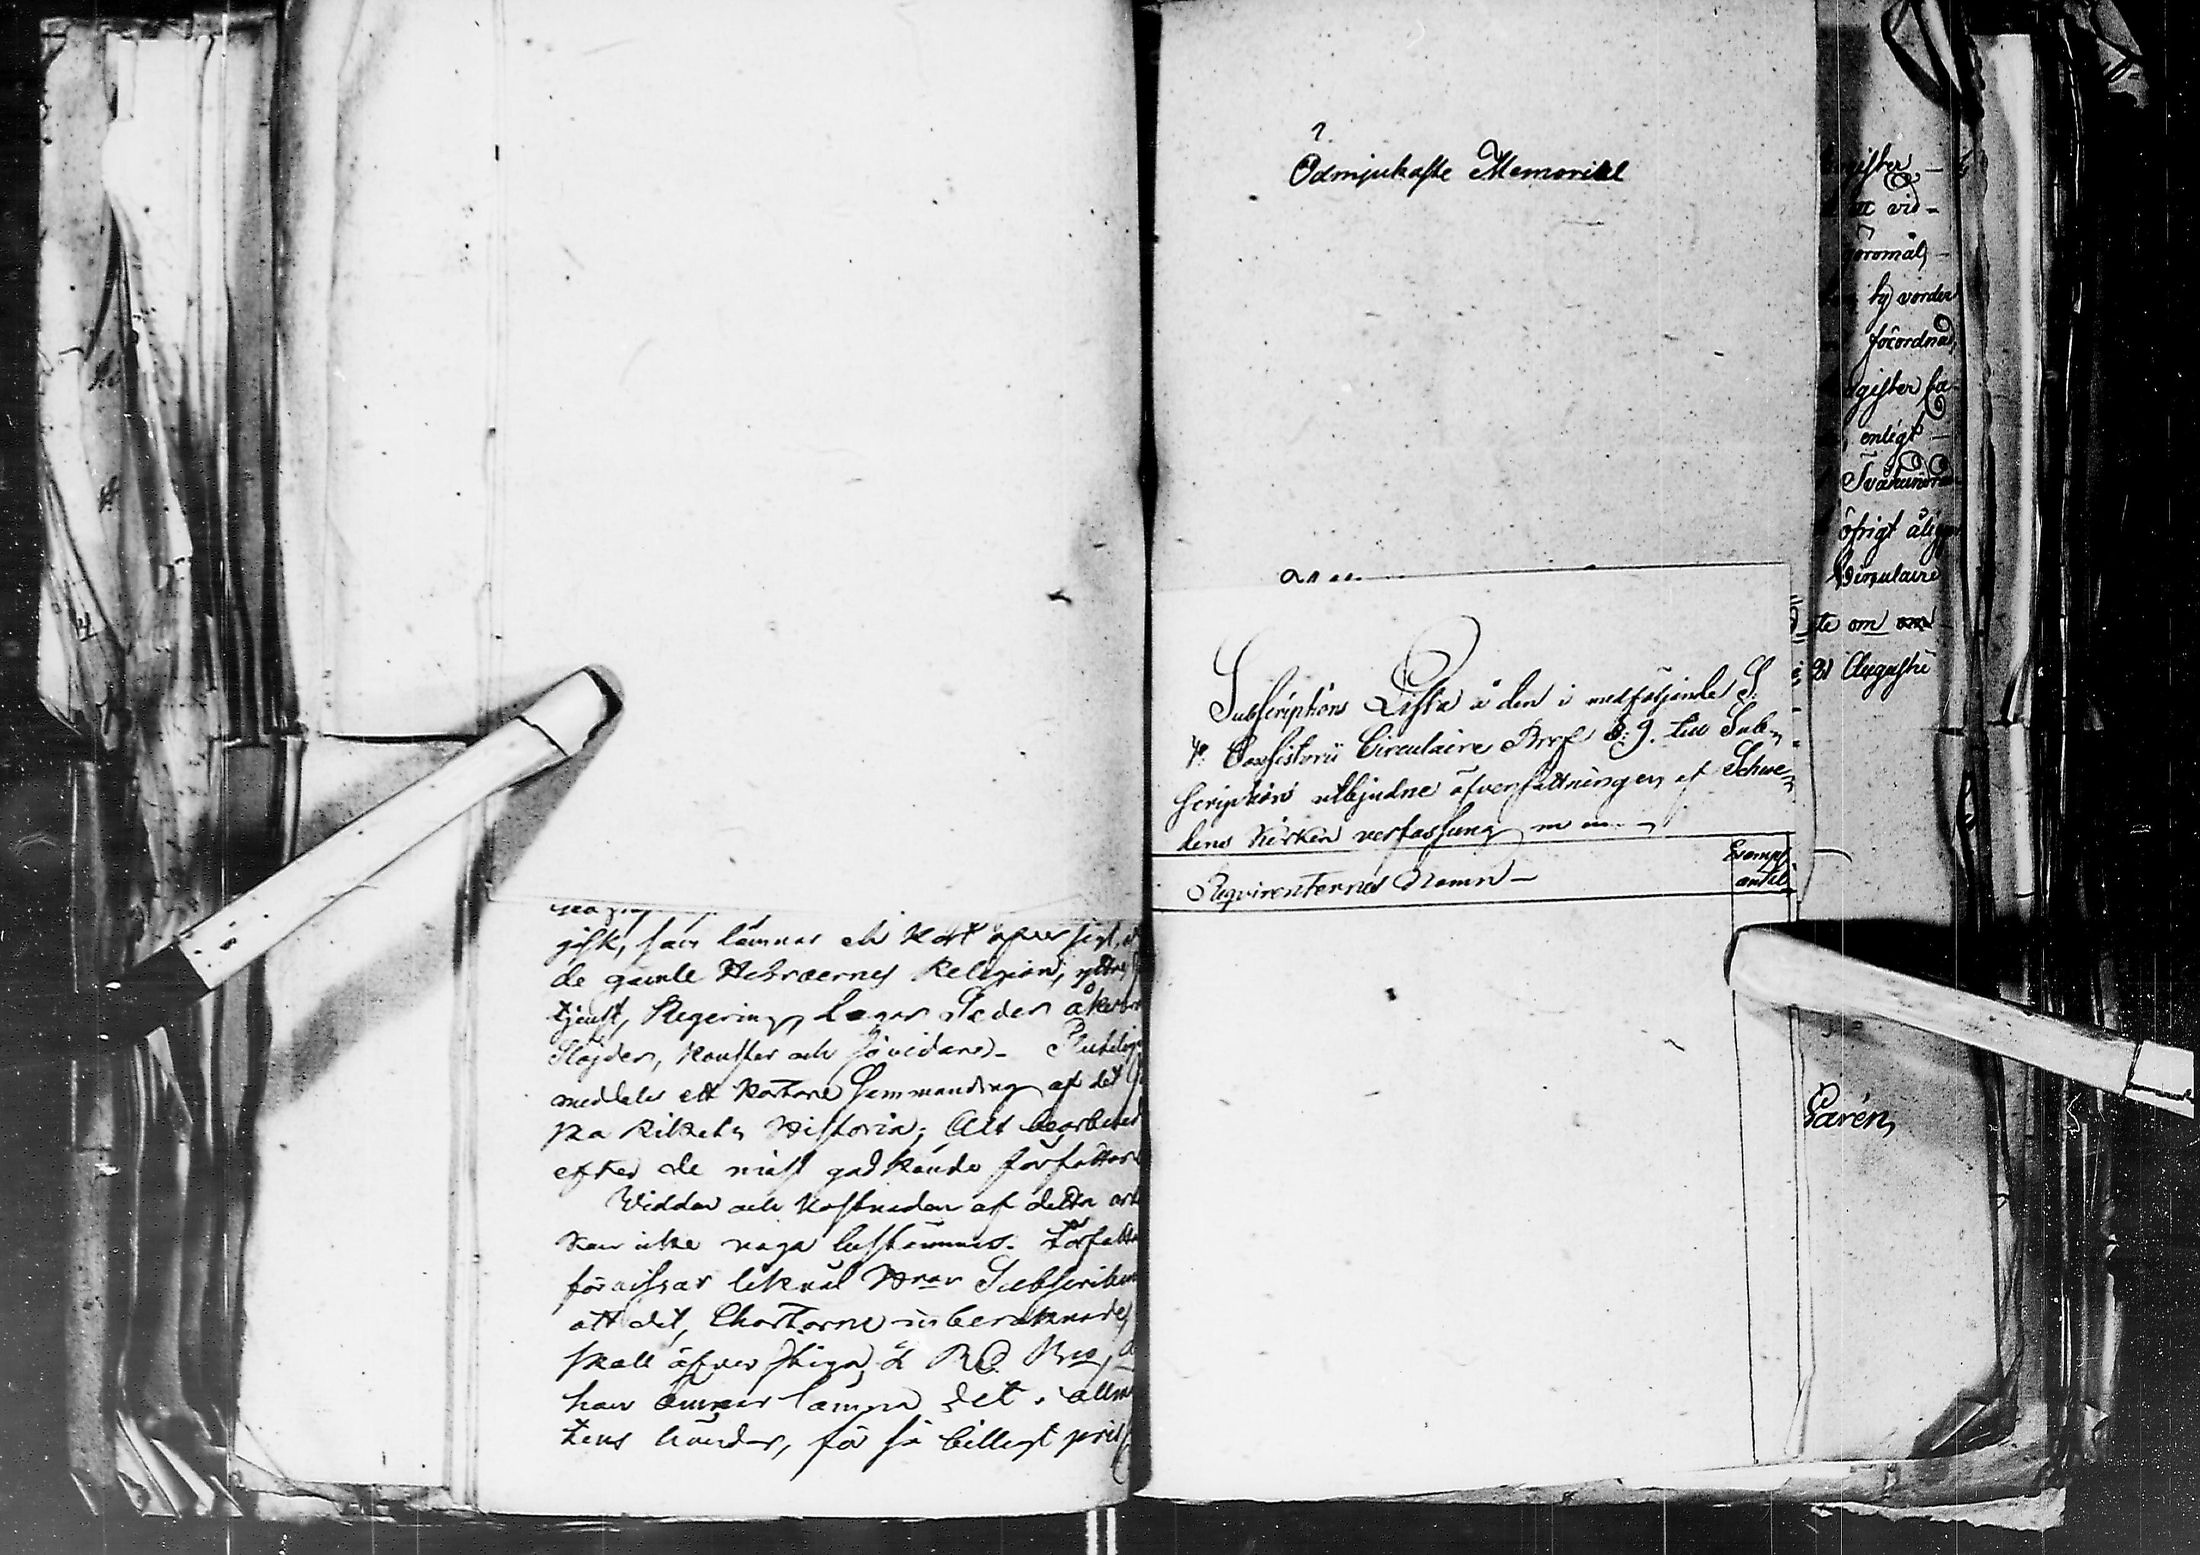 gisk, som lämnar en kort öfversigt,
de gamle Hebræernes Religion, yttre
tjenst, Regering, Lagar Seder åkerbru
Slöjder, Konster och så vidare. Slutelig
meddeles ett kortare Sammandrag af det
ska Rikets Historia; Alt bearbetat
efter de mäst godkände författare
Vidden och kostnaden af detta arb
kan icke noga bestämmas. Författa
försissrar likväl Hrar Subscribent
att det, Chartorne inberäknade,
skall öfver stiga 2 RD. Bco,
han ämnar lämna det i allm
tens händer, för så billigt pris
Ödmjukaste Memorial
Subscriptions Lista å den i medföljande S:
Consistorii Circulaire Bref § 9. till Sub-
scription utbjudne öfversättningen af Schwe-
dens Kirchen verfassung m m.
Requirenternes Namn — Exempl
antal
gister
att vid-
göromål,
ty vörder
förordnad,
gister fa-
enligt
Tvåhundra
öfrigt ålig
Circulaire
te om om
21 Augusti
Parén,